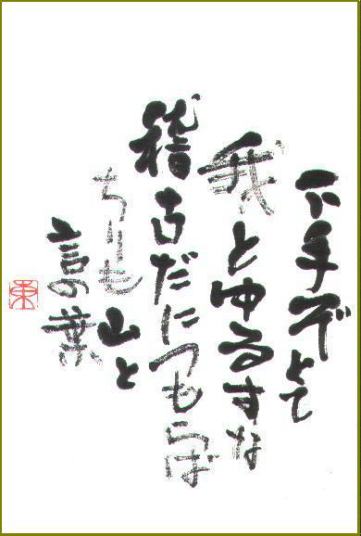 下手ぞとて
我とゆるすな
稽古だにつもらば
ちりも山と
言の葉
東